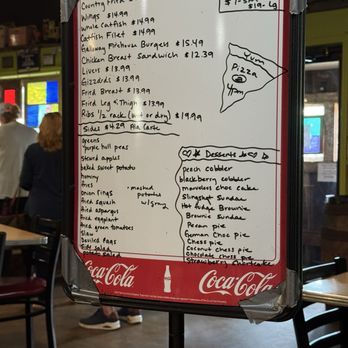 Country Fried
$19- Lg
Wings $14.99
Whole Catfish $14.99
Catfish Filet $14.99
Galaway Firehouse Burgers $15.49
Chicken Breast Sandwich $12.39
Livers $13.99
Gizzards $13.99
Fried Breast $13.99
Fried Leg & Thigh $13.99
Ribs 1/2 rack (wet or dry) $19.99
Yum
Pizza
@
4pm
Sides $4.29 Ala Carte
greens
purple hull peas
stewed apples
baked sweet potato
hominy
fries
onion rings
• mashed potatoes
w/gravy
fried squash
fried asparagus
fried eggplant
fried green tomatoes
slaw
Deviled eggs
side salad
Desserts
peach cobbler
blackberry cobbler
marvelous choc cake
Slingshot Sundae
Hot fudge Brownie
Brownie Sundae
Pecan pie
German Choc pie
Chess pie
Coconut chess pie
Chocolate chess pie
Strawberry Shortcake
Coca-Cola
Coca-Cola